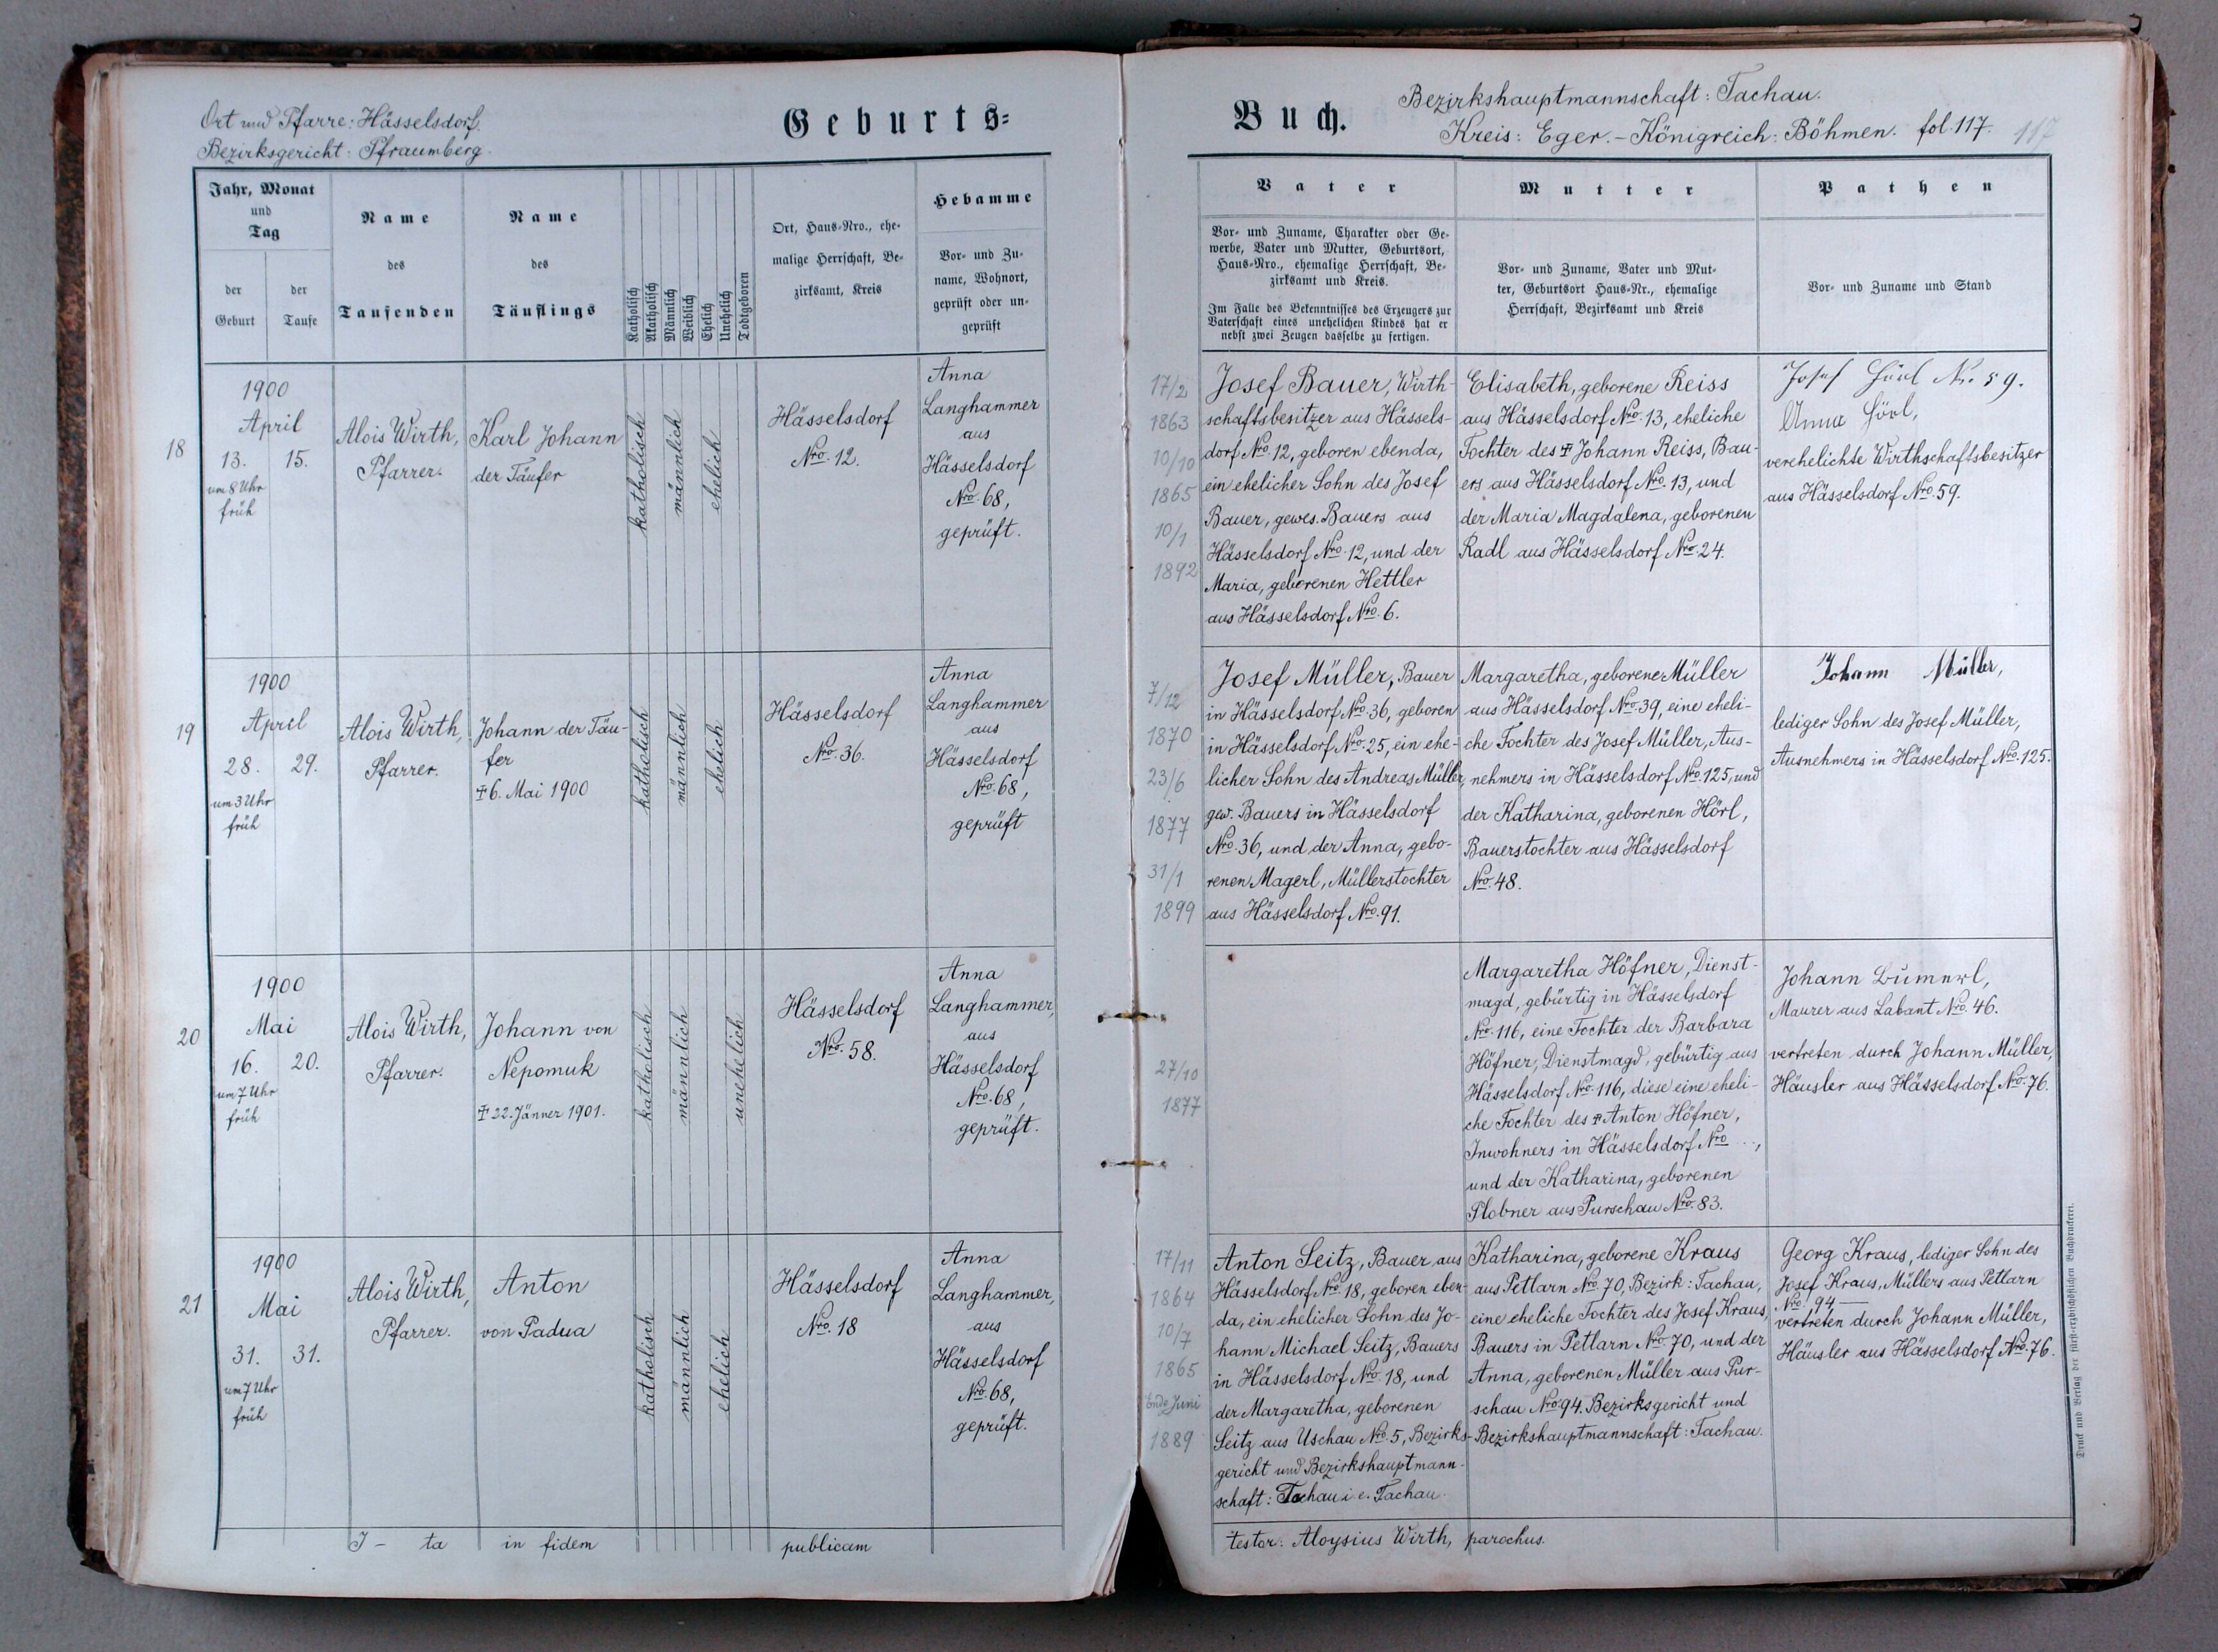 Ort und Pfarre: Hässelsdorf.
Bezirksgericht: Pfraumberg.
Geburts=
Jahr, Monat
und
Tag
der
Geburt
der
Taufe
Name
des
Taufenden
Name
des
Täuflings
Katholisch
Akatholisch
Männlich
Weiblich
Ehelich
Unehelich
Todtgeboren
Ort, Haus=Nro., ehe=
malige Herrschaft, Be=
zirksamt, Kreis
Hebamme
Vor= und Zu=
name, Wohnort,
geprüft oder un=
geprüft
18
1900
April
13. 15.
um 8 Uhr
früh
Alois Wirth,
Pfarrer.
Karl Johann
der Täufer
katholisch
männlich
ehelich
Hässelsdorf
Nro. 12.
Anna
Langhammer
aus
Hässelsdorf
Nro. 68,
geprüft.
19
1900
April
28. 29.
um 3 Uhr
früh
Alois Wirth,
Pfarrer.
Johann der Täu-
fer
6. Mai 1900
katholisch
männlich
ehelich
Hässelsdorf
Nro. 36.
Anna
Langhammer
aus
Hässelsdorf
Nro. 68,
geprüft
20
1900
Mai
16. 20.
um 7 Uhr
früh
Alois Wirth,
Pfarrer.
Johann von
Nepomuk
22. Jänner 1901.
katholisch
männlich
unehelich
Hässelsdorf
Nro. 58.
Anna
Langhammer,
aus
Hässelsdorf
Nro. 68,
geprüft.
21
1900
Mai
31. 31.
um 7 Uhr
früh
Alois Wirth,
Pfarrer.
Anton
von Padua
katholisch
männlich
ehelich
Hässelsdorf
Nro. 18
Anna
Langhammer,
aus
Hässelsdorf
Nro. 68,
geprüft.
I - ta in fidem publicam
Buch.
Bezirkshauptmannschaft: Tachau.
Kreis: Eger. - Königreich: Böhmen. fol. 117. 117
Vater
Vor= und Zuname, Charakter oder Ge=
werbe, Vater und Mutter, Geburtsort,
Haus=Nro., ehemalige Herrschaft, Be=
zirksamt und Kreis.
Im Falle des Bekenntnisses des Erzeugers zur
Vaterschaft eines unehelichen Kindes hat er
nebst zwei Zeugen dasselbe zu fertigen.
Mutter
Vor= und Zuname, Vater und Mut=
ter, Geburtsort Haus=Nr., ehemalige
Herrschaft, Bezirksamt und Kreis
Pathen
Vor= und Zuname und Stand
17/2
1863
10/10
1865
10/1
1892
Josef Bauer, Wirth-
schaftsbesitzer aus Hässels-
dorf Nro. 12, geboren ebenda,
ein ehelicher Sohn des Josef
Bauer, gewes. Bauers aus
Hässelsdorf Nro. 12, und der
Maria, geborenen Hettler
aus Hässelsdorf Nro. 6.
Elisabeth, geborene Reiss
aus Hässelsdorf Nro. 13, eheliche
Tochter des Johann Reiss, Bau-
ers aus Hässelsdorf Nro. 13, und
der Maria Magdalena, geborenen
Radl aus Hässelsdorf Nro. 24.
Josef Hörl Nr. 59.
Anna Hörl,
verehelichte Wirthschaftsbesitzer
aus Hässelsdorf Nro. 59.
7/12
1870
23/6
1877
31/1
1899
Josef Müller, Bauer
in Hässelsdorf Nro. 36, geboren
in Hässelsdorf Nro. 25, ein ehe-
licher Sohn des Andreas Müller,
gew. Bauers in Hässelsdorf
Nro. 36, und der Anna, gebo-
renen Magerl, Müllerstochter
aus Hässelsdorf Nro. 91.
Margaretha, geborene Müller
aus Hässelsdorf Nro. 39, eine eheli-
che Tochter des Josef Müller, Aus-
nehmers in Hässelsdorf Nro. 125, und
der Katharina, geborenen Hörl,
Bauerstochter aus Hässelsdorf
Nro. 48.
Johann Müller,
lediger Sohn des Josef Müller,
Ausnehmers in Hässelsdorf Nro. 125.
27/10
1877
Margaretha Höfner, Dienst-
magd, gebürtig in Hässelsdorf
Nro. 116, eine Tochter der Barbara
Höfner, Dienstmagd, gebürtig aus
Hässelsdorf Nro. 116, diese eine eheli-
che Tochter des Anton Höfner,
Inwohners in Hässelsdorf Nro ...,
und der Katharina, geborenen
Plobner aus Purschau Nro. 83.
Johann
Maurer aus Labant Nro. 46.
vertreten durch Johann Müller,
Häusler aus Hässelsdorf Nro. 76.
17/11
1864
10/7
1865
Ende Juni
1889
Anton Seitz, Bauer aus
Hässelsdorf Nro. 18, geboren eben-
da, ein ehelicher Sohn des Jo-
hann Michael Seitz, Bauers
in Hässelsdorf Nro. 18, und
der Margaretha, geborenen
Seitz aus Uschau Nro. 5, Bezirks-
gericht und Bezirkshauptmann-
schaft: Tachau i. e. Tachau.
Katharina, geborene Kraus
aus Petlarn Nro. 70, Bezirk: Tachau,
eine eheliche Tochter des Josef Kraus,
Bauers in Petlarn Nro. 70, und der
Anna, geborenen Müller aus Pur-
schau Nro. 94. Bezirksgericht und
Bezirkshauptmannschaft: Tachau.
Georg Kraus, lediger Sohn des
Josef Kraus, Müllers aus Petlarn
Nro. 94
vertreten durch Johann Müller,
Häusler aus Hässelsdorf Nro. 76.
testor: Aloysius Wirth, parochus.
Druck und Verlag der fürst-erzbischöflichen Buchdruckerei.